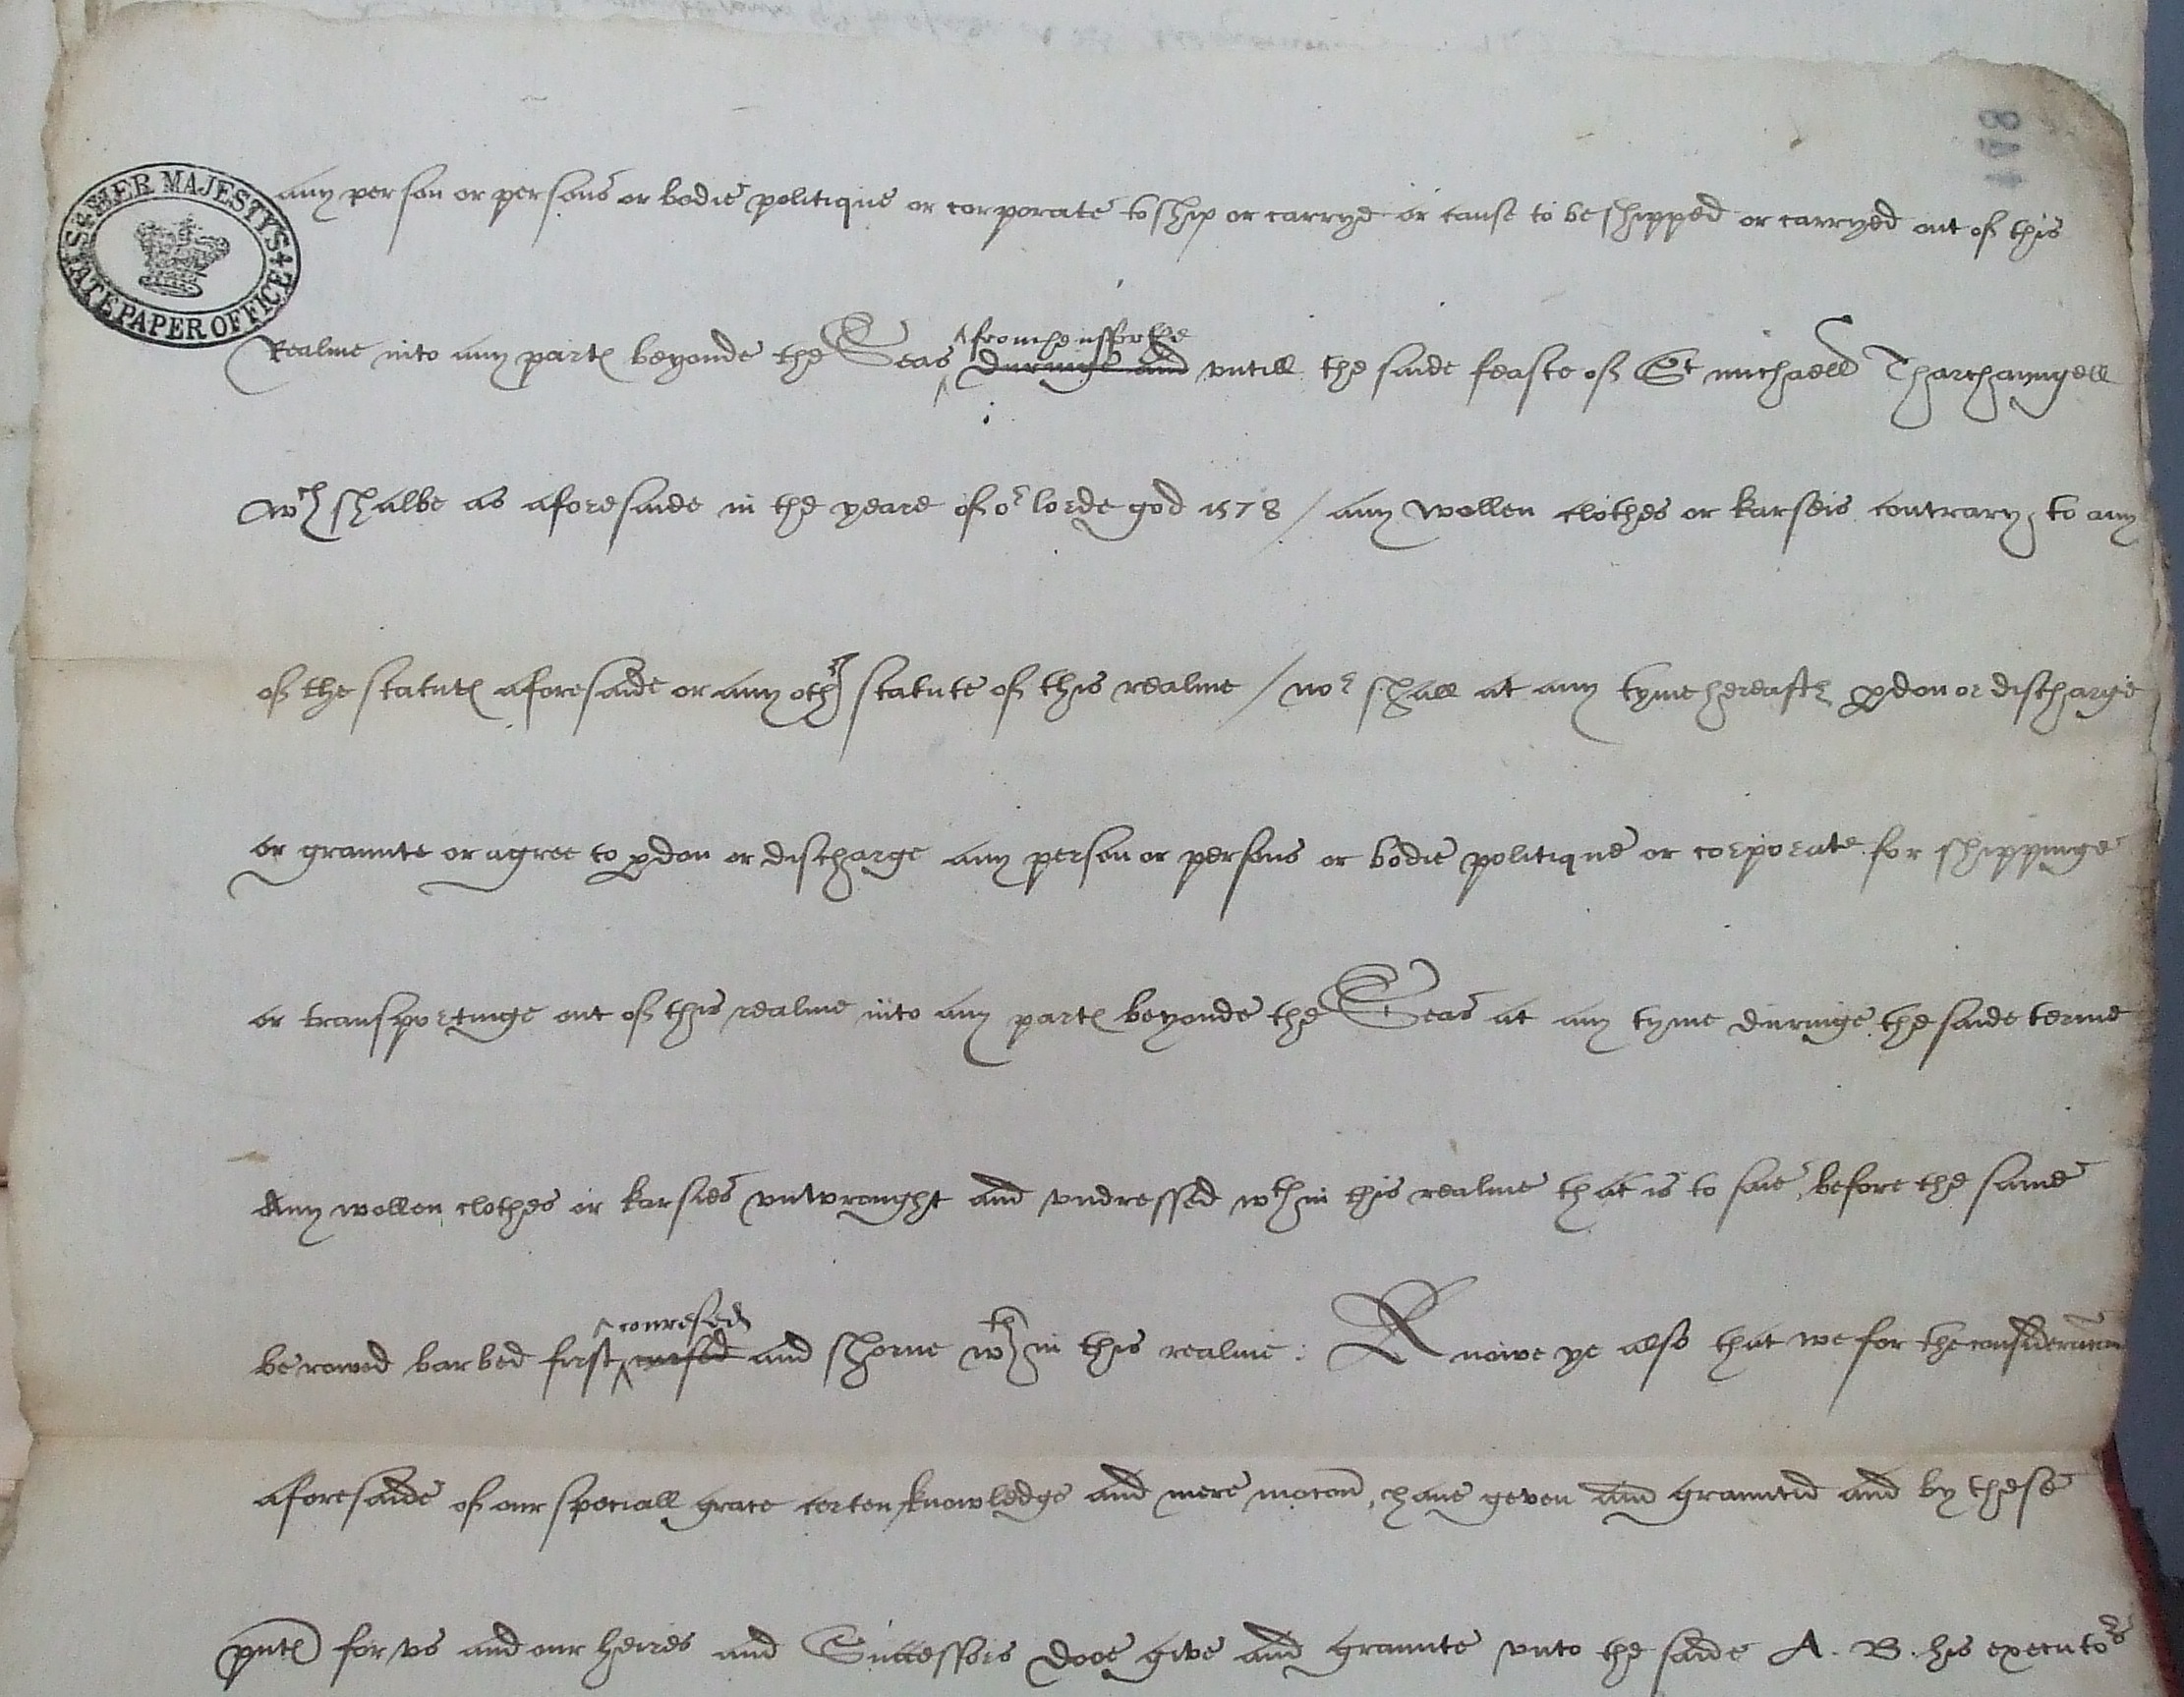 148
HER MAJESTY'S STATE PAPER OFFICE
any person or persons or bodie politique or corporate to ship or carrye or cause to be shipped or carryed out of this
fromhensforthe
Realme into any partes beyonde the Seas duringe and untill the saide feaste of St michaell Tharchanngell
wch shalbe as aforesaide in the yeare of or lorde god 1578 / any wollen clothes or karseis contrary to any
of the statutes aforesaide or any other statute of this realme / nor shall at any tyme hereafter pdon or discharge
or graunte or agree to pdon or discharge any person or persons or bodie politique or corporate for shippinge
or transportinge out of this realme into any partes beyonde the Seas at any tyme duringe the saide terme
Any wollen clothes or karsies unwrought and undressed wthin this realme that is to saie before the same
be rowed barbed first and shorne wth in this realme : Knowe ye also that we for the consideracon
aforesaide of our speciall grace certen knowledge and mere mocon, have geven and graunted and by these
pntes for us and our heires and Successors dooe give and graunte unto the saide A. B. his executors